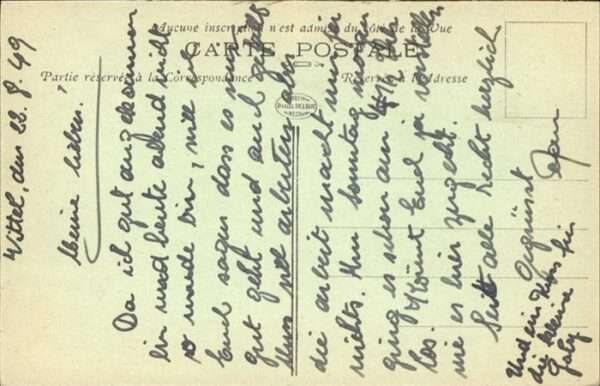 Aucune inscription n'est admise du côté de la Vue
CARTE POSTALE
Partie réservée à la Correspondance
Réservé à l'Adresse
Wittel, den 22. 8. 49
Meine lieben!
Da ich gut angekommen
bin und heute abend nicht
so müde bin, will ich
Euch sagen dass es mir
gut geht und auch
Muss viel arbeiten aber
die arbeit macht mir
nichts. Am Sonntag morgen
ging es schon um 4 1/2 Uhr
los. Könnt Euch ja vorstellen
wie es hier zugeht.
Seit alle recht herzlich
Gegrüsst
Und ein Kuss für
die kleine
Gaby